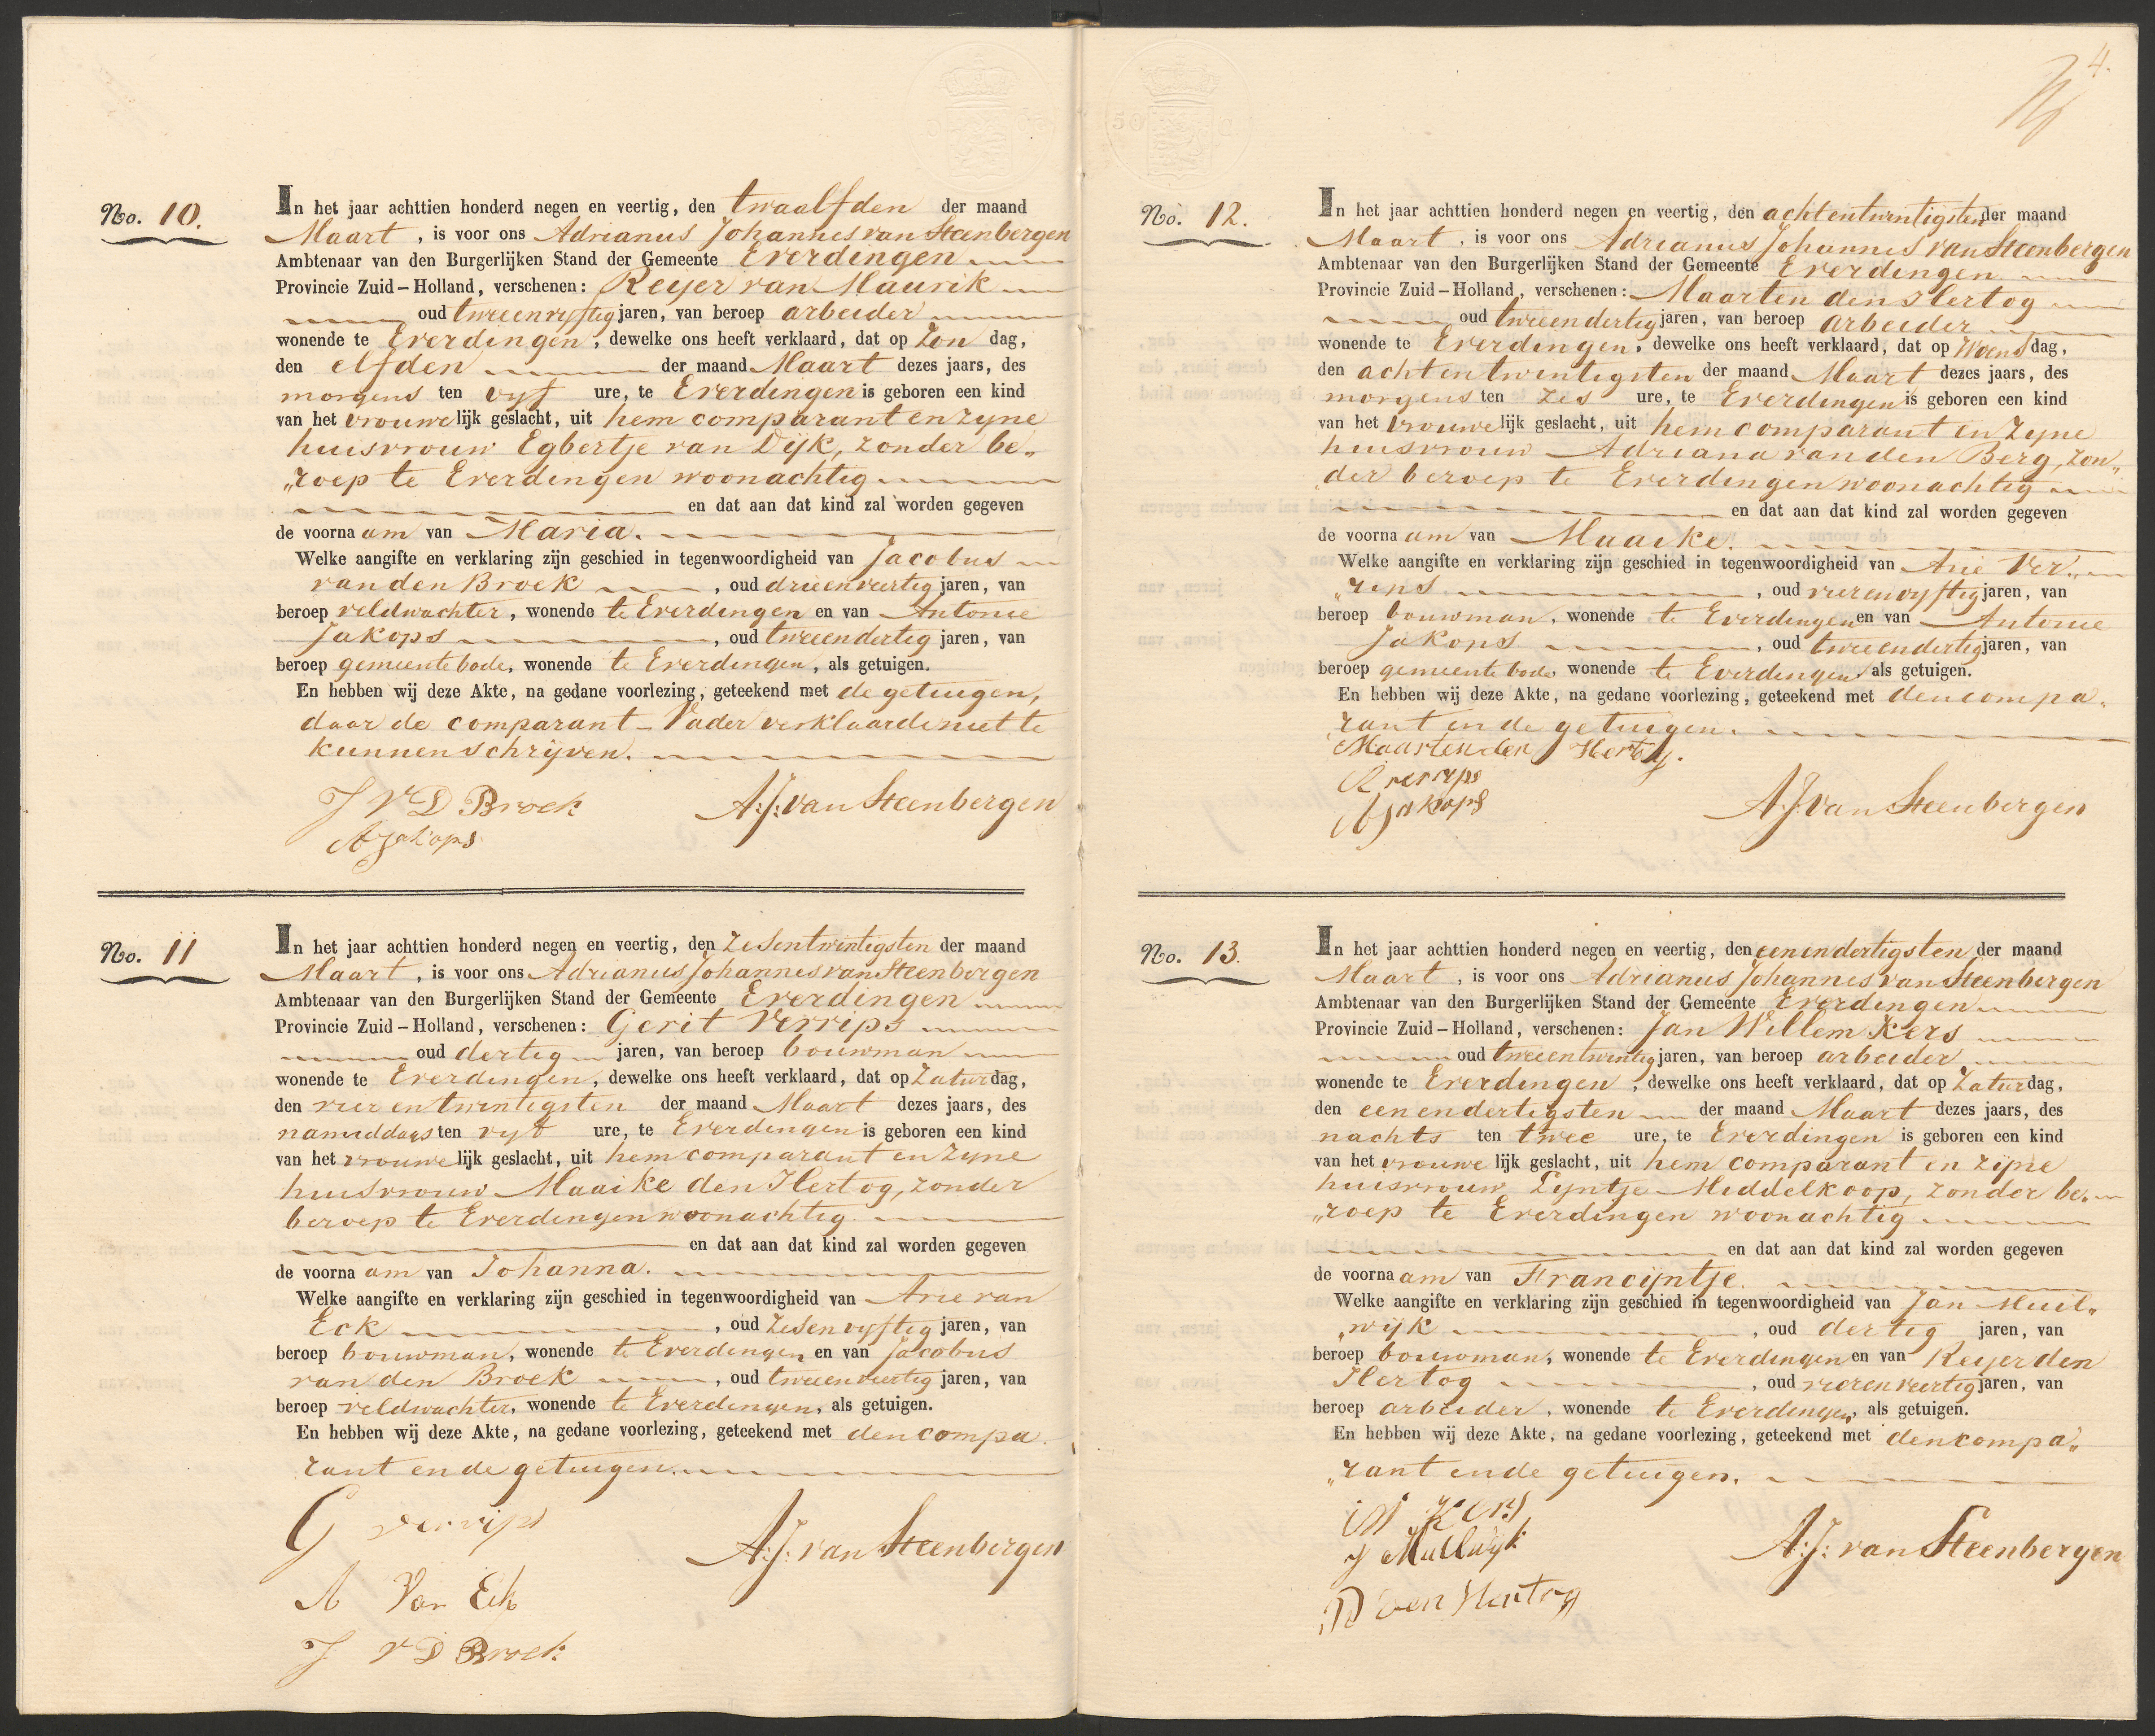 No. 10.
In het jaar achttien honderd negen en veertig, den twaalfden der maand
Maart, is voor ons Adrianus Johannes van Steenbergen
Ambtenaar van den Burgerlijken Stand der Gemeente Everdingen
Provincie Zuid-Holland, verschenen: Reyer van Maurik
oud tweeenvyftig jaren, van beroep arbeider
wonende te Everdingen, dewelke ons heeft verklaard, dat op Zon dag,
den elfden der maand Maart dezes jaars, des
morgens ten vyf ure, te Everdingen is geboren een kind
van het vrouwelijk geslacht, uit hem comparant en zyne
huisvrouw Egbertje van Dijk, zonder be„
„roep te Everdingen woonachtig
en dat aan dat kind zal worden gegeven
de voornaam van Maria.
Welke aangifte en verklaring zijn geschied in tegenwoordigheid van Jacobus
van den Broek, oud drieenveertig jaren, van
beroep veldwachter, wonende te Everdingen en van Antonie
Jakops, oud tweeendertig jaren, van
beroep gemeentebode, wonende te Everdingen, als getuigen.
En hebben wij deze Akte, na gedane voorlezing, geteekend met de getuigen,
daar de comparant-Vader verklaarde niet te
kunnen schrijven.
J VD Broek A:J: van Steenbergen
A Jakops
No. 11
In het jaar achttien honderd negen en veertig, den zesentwintigsten der maand
Maart, is voor ons Adrianus Johannes van Steenbergen
Ambtenaar van den Burgerlijken Stand der Gemeente Everdingen
Provincie Zuid-Holland, verschenen: Gerit Verrips
oud dertig jaren, van beroep bouwman
wonende te Everdingen, dewelke ons heeft verklaard, dat op Zaturdag,
den vier en twintigsten der maand Maart dezes jaars, des
namiddags ten vyf ure, te Everdingen is geboren een kind
van het vrouwelijk geslacht, uit hem comparant en zyne
huisvrouw Maaike den Hertog, zonder
beroep te Everdingen woonachtig.
en dat aan dat kind zal worden gegeven
de voornaam van Johanna.
Welke aangifte en verklaring zijn geschied in tegenwoordigheid van Arie van
Eck, oud zesenvyftig jaren, van
beroep bouwman, wonende te Everdingen en van Jacobus
van den Broek, oud tweeenveertig jaren, van
beroep veldwachter, wonende te Everdingen, als getuigen.
En hebben wij deze Akte, na gedane voorlezing, geteekend met den compa„
rant en de getuigen.
G verrips
A:J: van Steenbergen
A Van Eck
J VD Broek
4.
No. 12.
In het jaar achttien honderd negen en veertig, den achtentwintigsten der maand
Maart, is voor ons Adrianus Johannes van Steenbergen
Ambtenaar van den Burgerlijken Stand der Gemeente Everdingen
Provincie Zuid-Holland, verschenen: Maarten den Hertog
oud tweeendertig jaren, van beroep arbeider
wonende te Everdingen, dewelke ons heeft verklaard, dat op Woensdag,
den achtentwintigsten der maand Maart dezes jaars, des
morgens ten zes ure, te Everdingen is geboren een kind
van het vrouwelijk geslacht, uit hem comparant en zyne
huisvrouw Adriana van den Berg, zon„
der beroep te Everdingen woonachtig
en dat aan dat kind zal worden gegeven
de voornaam van Maaike.
Welke aangifte en verklaring zijn geschied in tegenwoordigheid van Arie Ver„
„rips, oud vierenvyftig jaren, van
beroep bouwman, wonende te Everdingen en van Antonie
Jakops, oud tweeendertig jaren, van
beroep gemeentebode, wonende te Everdingen als getuigen.
En hebben wij deze Akte, na gedane voorlezing, geteekend met den compa„
rant en de getuigen.
Maarten den Hertog.
A verrips
A Jakops A.J: van Steenbergen
No. 13.
In het jaar achttien honderd negen en veertig, den eenendertigsten der maand
Maart, is voor ons Adrianus Johannes van Steenbergen
Ambtenaar van den Burgerlijken Stand der Gemeente Everdingen
Provincie Zuid-Holland, verschenen: Jan Willem Kers
oud tweeentwintig jaren, van beroep arbeider
wonende te Everdingen, dewelke ons heeft verklaard, dat op Zaturdag,
den eenendertigsten der maand Maart dezes jaars, des
nachts ten twee ure, te Everdingen is geboren een kind
van het vrouwelijk geslacht, uit hem comparant en zijne
huisvrouw Lyntje Middelkoop, zonder be„
„roep te Everdingen woonachtig
en dat aan dat kind zal worden gegeven
de voornaam van Francijntje.
Welke aangifte en verklaring zijn geschied in tegenwoordigheid van Jan Muil„
„wijk, oud dertig jaren, van
beroep bouwman, wonende te Everdingen en van Reyer den
Hertog, oud vierenveertig jaren, van
beroep arbeider, wonende te Everdingen, als getuigen.
En hebben wij deze Akte, na gedane voorlezing, geteekend met den compa„
„rant en de getuigen.
JW Kers
J Muilwijk A:J: van Steenbergen
R den Hertog